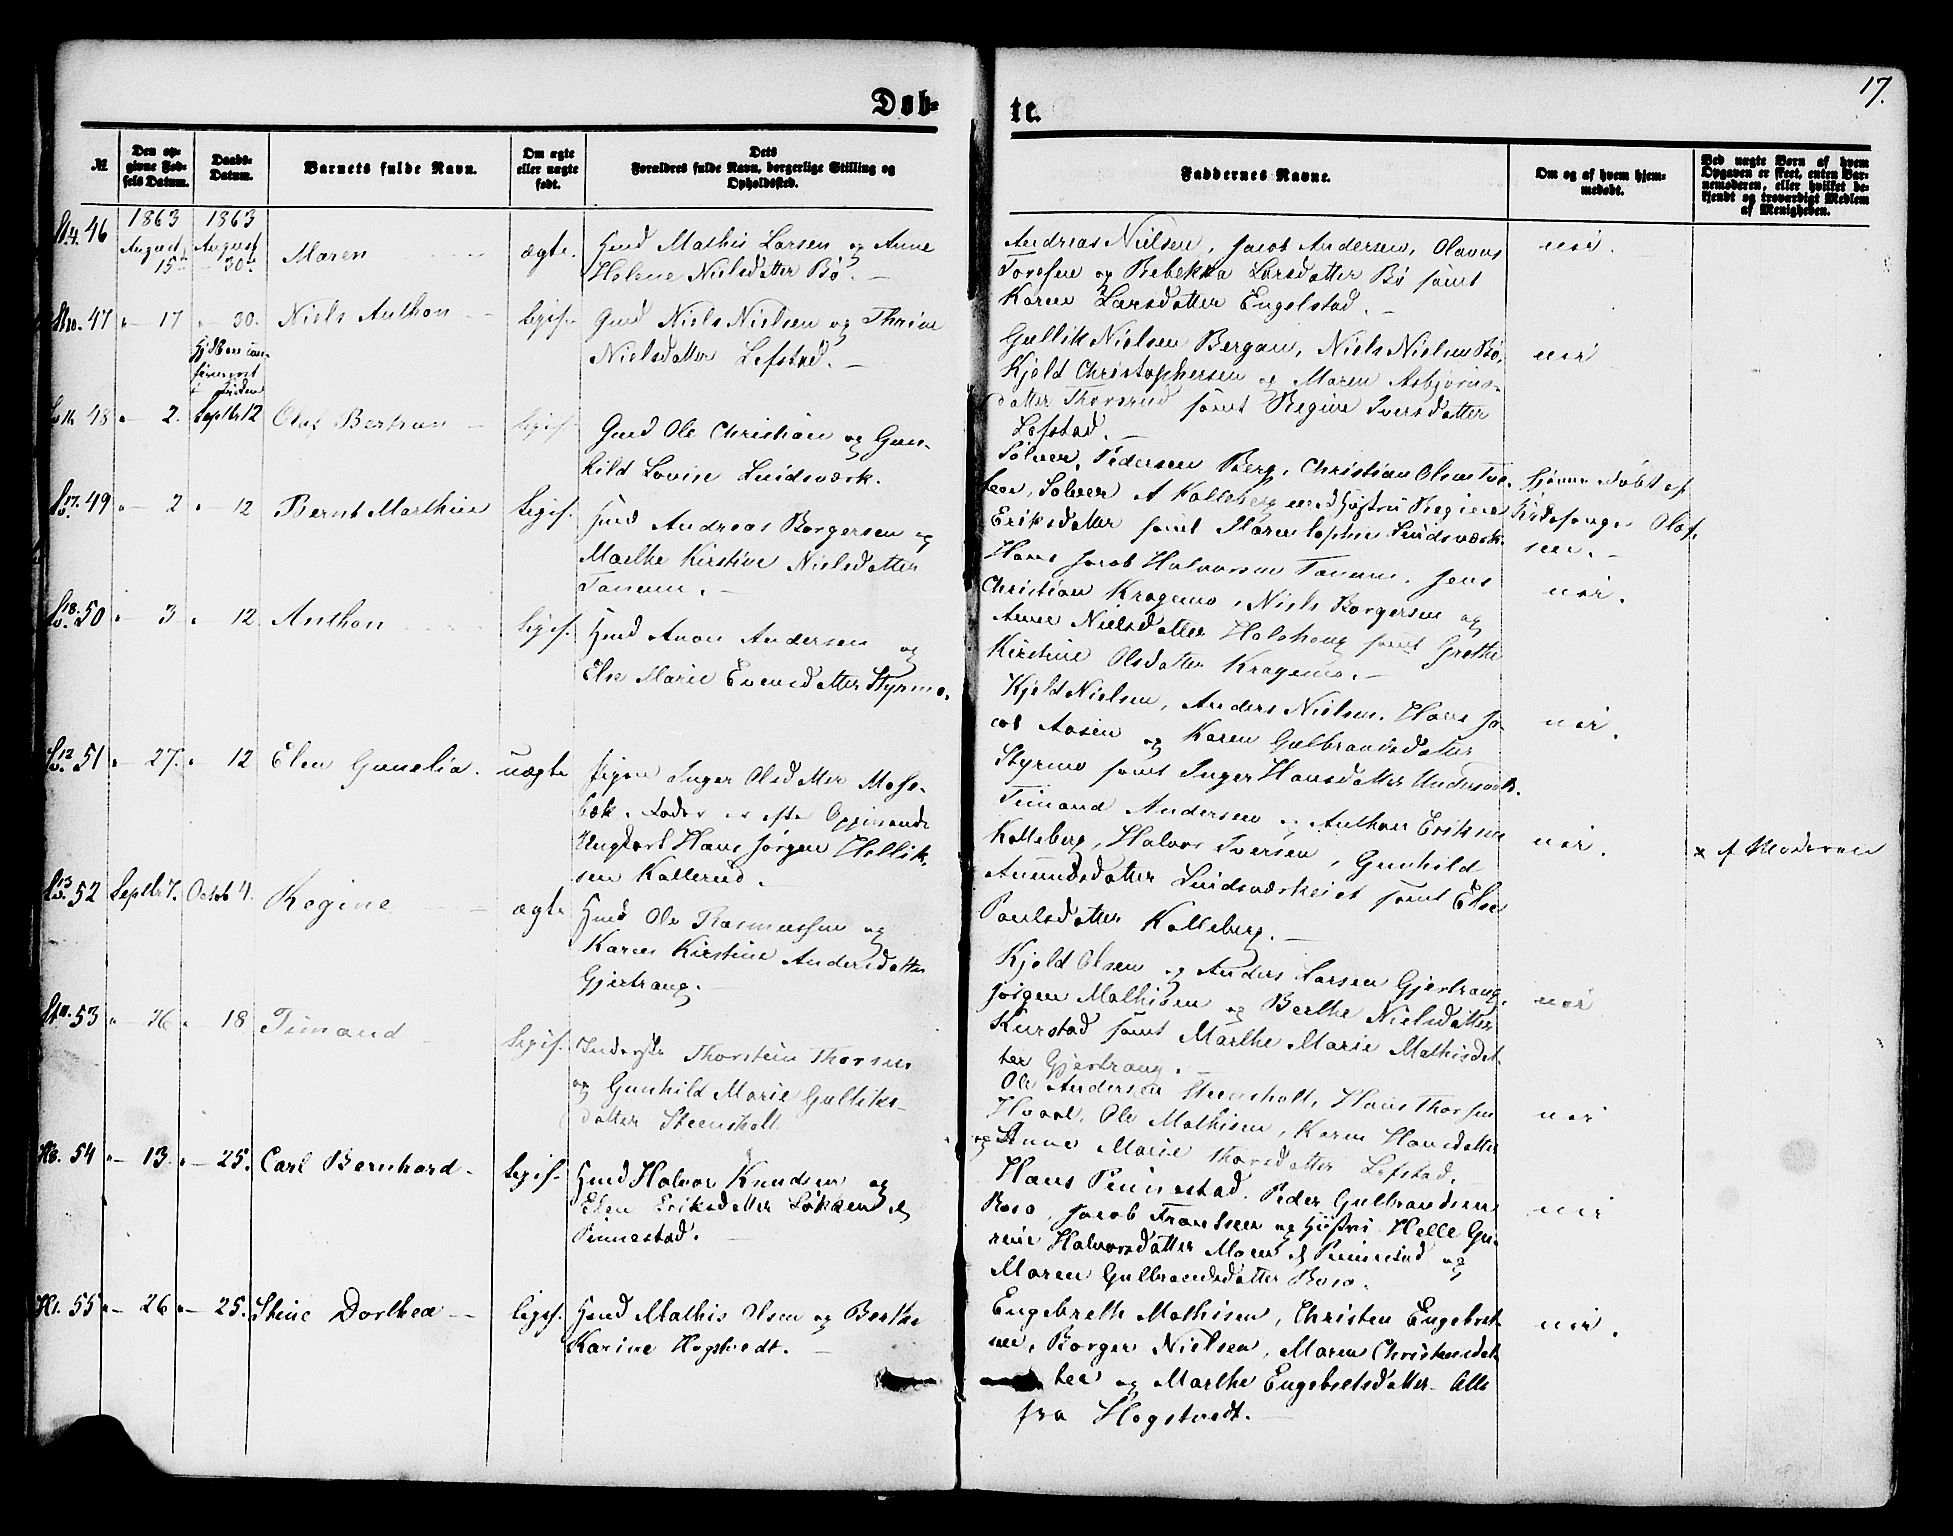 17.
Døb-
te.
№
Den op-
givne Fød-
sels Datum.
Daabs-
Datum.
Barnets fulde Navn.
Om ægte
eller uægte
født.
Dets
Forældres fulde Navn, borgerlige Stilling og
Opholdssted.
Faddernes Navne.
Om og af hvem hjem-
medøbt.
Ved uægte Børn af hvem
Opgaven er skeet, enten Bar-
nemoderen, eller hvilket be-
kjendt og troværdigt Medlem
af Menigheden.
46
1863
August
15de
1863
August
30de
Maren
ægte.
Gmd Mathis Larsen og Anne
Helene Nielsdatter Bø. —
Andreas Nielsen, Jacob Andersen, Olavus
Toresen og Rebekka Larsdatter Bø samt
Karen Larsdatter Engelstad. —
nei.
47
" — 17
" — 30.
Niels Anthon
ligis.
Gmd Niels Nielsen og Thrine
Nielsdatter Lofstad. —
Gullik Nielsen Bergan, Niels Nielsen Bø,
Kjøld Christophersen og Maren Asbjørns-
datter Thorsrud samt Regine Iversdatter
Lofstad. —
nei
48
" — 2.
Septbr 12
Olaf Bertran —
ligis.
Gmd Ole Christian og Gun-
hild Lovise Snidsværk.
Sølver Pedersen Berg, Christian Olsen
Sølver A Kolleberg med Hustru Regine
Eriksdatter samt Maren Sophie Snidsværk.
hjemmedøbt af
Kirkesanger Olaf-
sen. —
49
" — 2
" — 12
Bernt Marthin
ligis.
Gmd Andreas Borgersen og
Marthe Kirstine Nielsdatter
Tanum. —
Hans Jacob Halvorsen Tanum, Jens
Christian Kragemo, Niels Borgersen og
Anne Nielsdatter Holshoug samt Grethe
Kirstine Olsdatter Kragemo. —
nei.
50
" — 3
" 12
Anthon
ligis.
Gmd Anon Andersen og
Else Marie Evensdatter Styrmo.
Kjøld Nielsen, Anders Nielsen, Hans Ja-
cob Aasen og Karen Gulbrandsdatter
Styrmo samt Inger Hansdatter Undersvik.
nei.
51
" — 27.
" — 12
Elen Gunelia.
uægte
Pigen Inger Olsdatter Mose-
bæk. Fader er efter Opgivende
Ungkarl Hans Jørgen Hellik-
sen Kallerud.
Timand Andersen og Anthon Eriksen
Kolleberg, Halvor Iversen, Gunhild
Amundsdatter Snidsværkeiet samt Else
Paulsdatter Kolleberg. —
nei.
x af Moderen
52
Septbr 7.
Octob 4.
Regine
ægte
Gmd Ole Rasmussen og
Karen Kirstine Andersdatter
Gjertrang. —
Kjøld Olsen og Anders Larsen Gjertrang,
Jørgen Mathisen og Berthe Nielsdatter
Kurstad samt Marthe Marie Mathisdat-
ter Gjertrang. —
nei
53
" — 26
" — 18
Timand
ligis.
Inderste Thorstein Thorsen
og Gunhild Marie Gulliks-
datter Steensholt
Ole Andersen Steensholt, Hans Thorsen
Hvaal, Ole Mathisen, Karen Hansdatter
og Anne Marie Thorsdatter Lofstad.
nei
54
" — 13.
" — 25.
Carl Bernhard —
ligis.
Gmd Halvor Knudsen og
Elen Eriksdatter Løkken af
Pinnestad.
Hans Pinnestad, Peder Gulbrandsen
Roso, Jacob Frantsen og Hustru Helle Gu-
rine Halvorsdatter Moen af Pinnestad og
Maren Gulbrandsdatter Roso.
nei
55
" — 26
" — 25.
Stine Dorthea —
ligis.
Gmd Mathis Olsen og Berthe
Karine Hogstvedt. —
Engebreth Mathisen, Christen Engebret-
sen, Borger Nielsen, Maren Christensdat-
ter og Marthe Engebretsdatter Alle
fra Hogstvedt. —
nei.